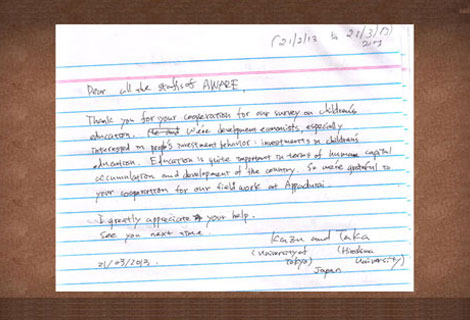 (21/2/13 to 21/3/13)
2013
Dear all the staffs of AWARE,
Thank you for your cooperation for our survey on children's
education. We're development economists, especially
interested in people's investment behavior: investments in children's
education. Education is quite important in terms of human capital
accumulation and development of the country. So we're grateful to
your cooperation for our field work at Appadurai.
I greatly appreciate your help.
See you next time.
Kazu and Taka
(University of Tokyo) (Hiroshima University)
Japan
21/03/2013.